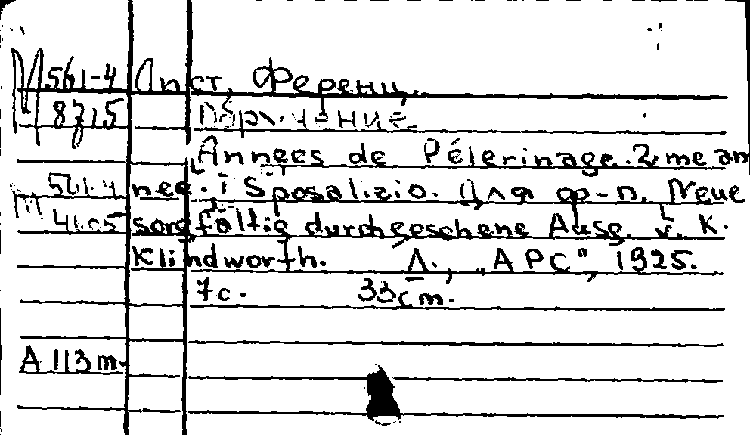 М 561-4 Лист, Ференц.
8715 Обручение.
[Annees de Pélerinage. 2me an
М 561-4 nee. 1 Sposalizio. Для ф-п. Neue
4605 sorgfältig durchgesehene Ausg. v. K.
Klindworth. Л., „АРС", 1925.
7с. 33см.
А 113м.